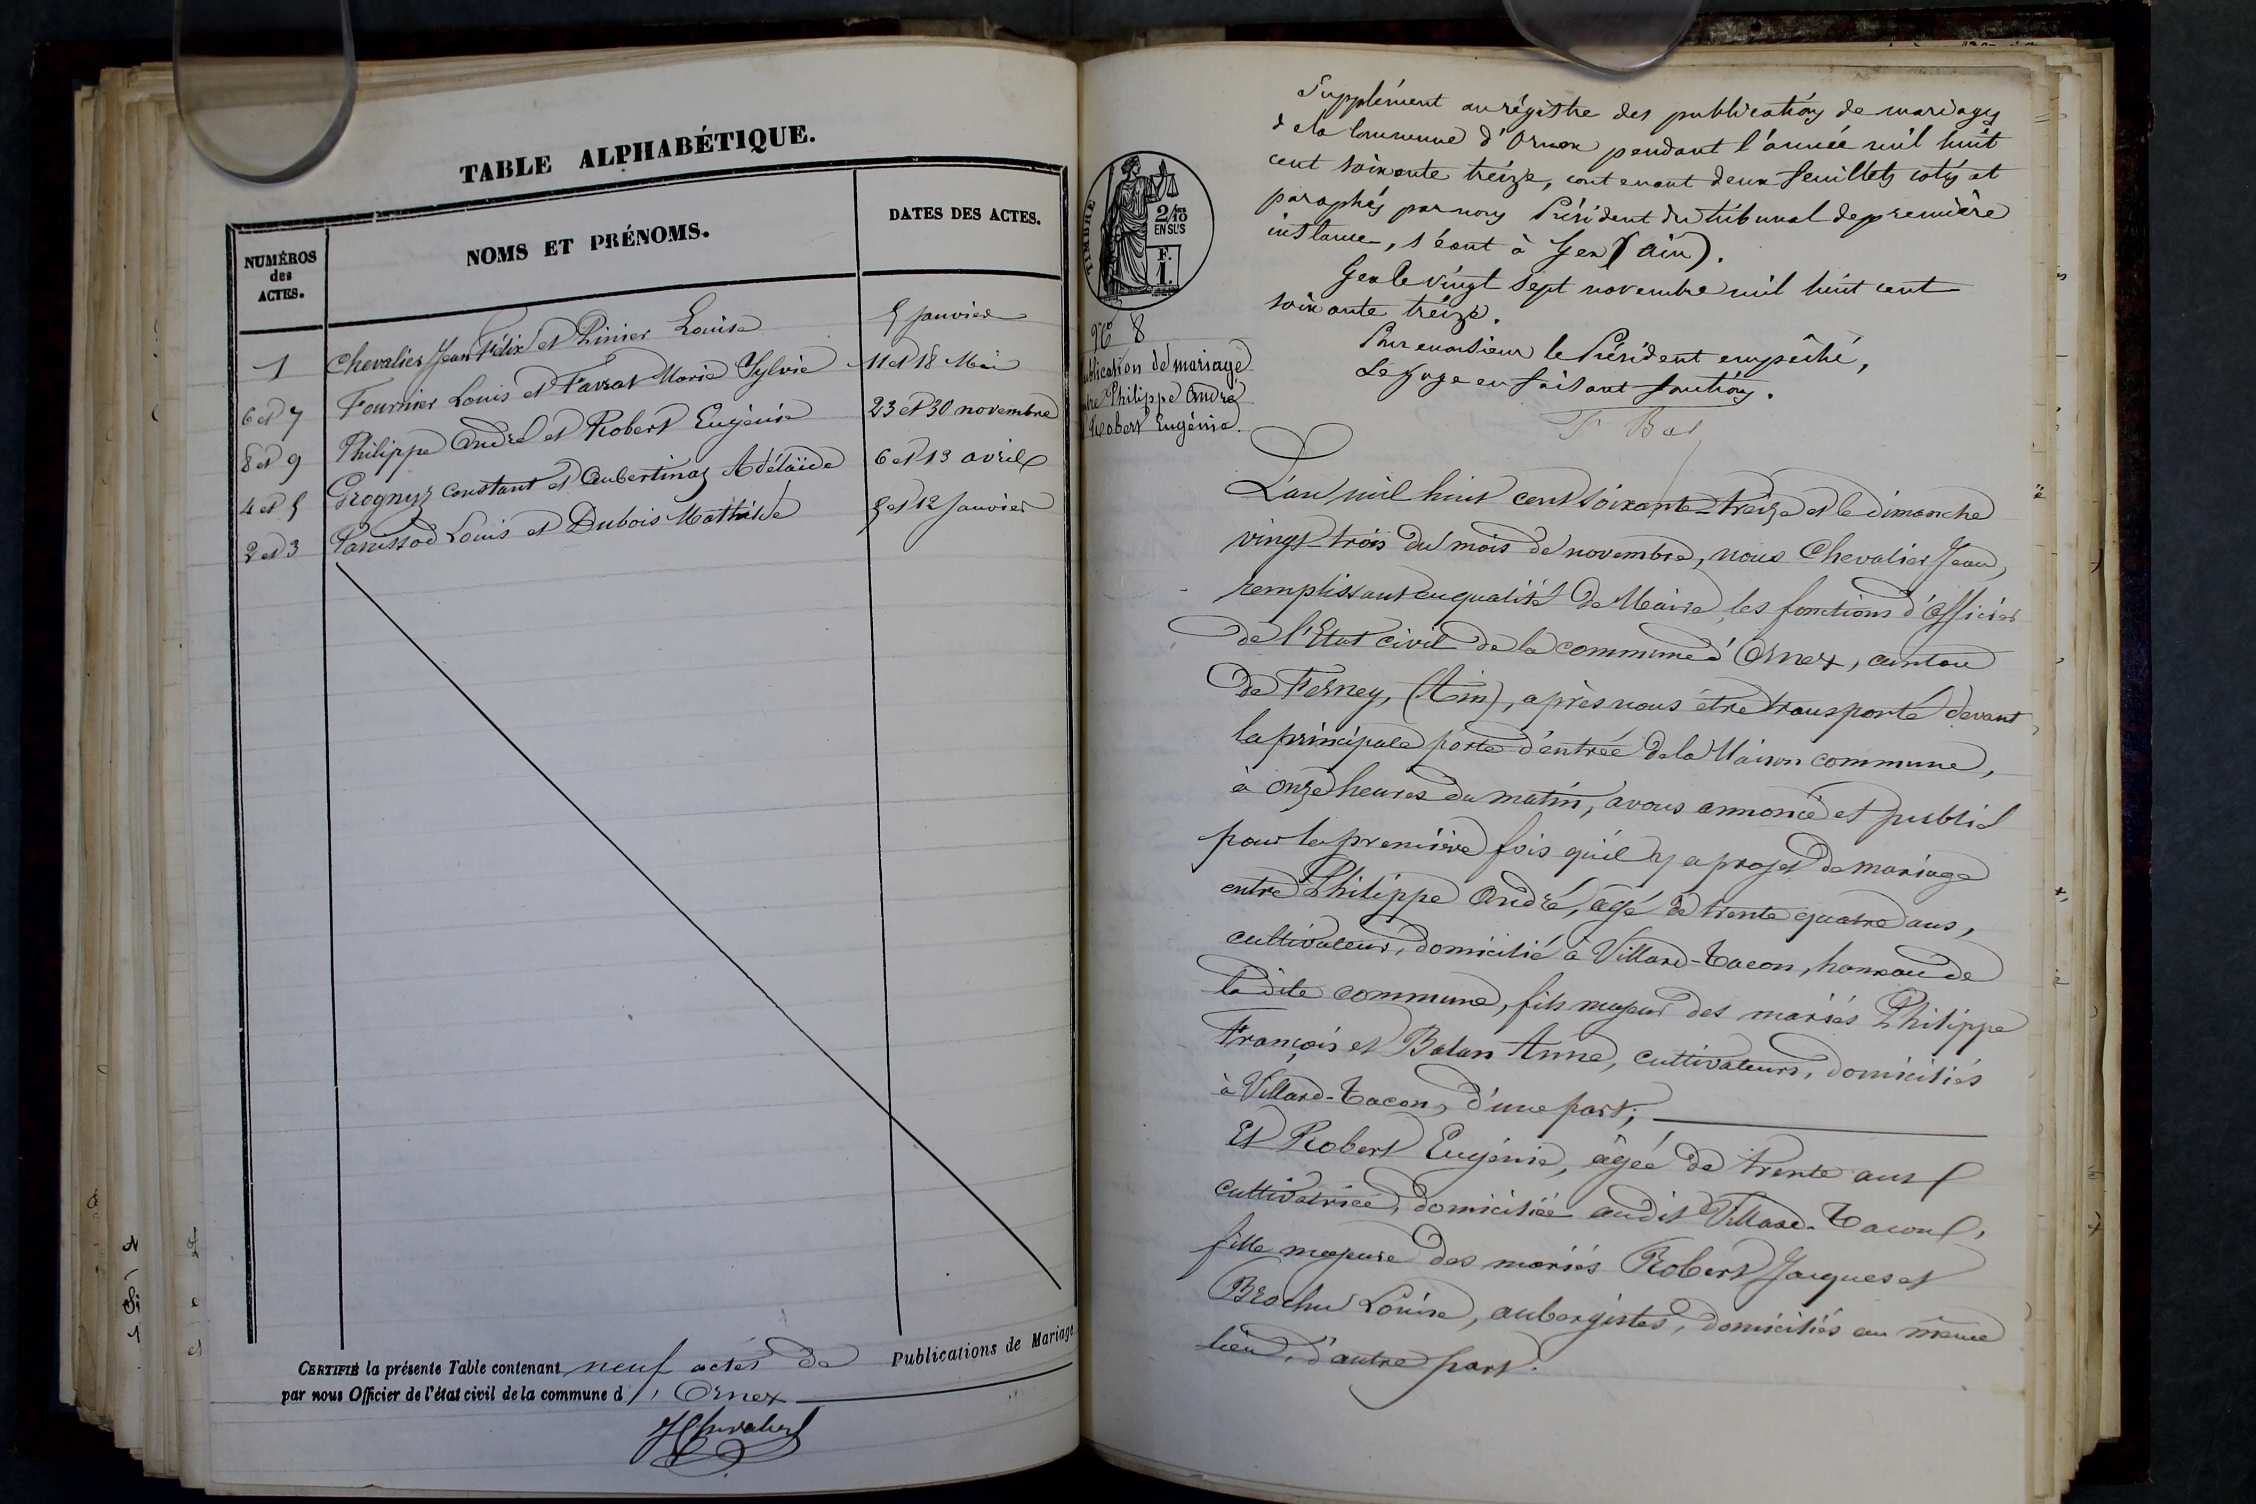 TABLE ALPHABÉTIQUE.
NUMÉROS des ACTES.
NOMS ET PRÉNOMS.
DATES DES ACTES.
1 Chevalier Jean Félix et Pinier Louise 5 Janvier
6 et 7 Fournier Louis et Favrat Marie Sylvie 11 et 18 Mai
8 et 9 Philippe André et Robert Eugénie 23 et 30 novembre
4 et 5 Prognyz Constant et Aubertinaz Adélaïde 6 et 13 avril
2 et 3 Panissod Louis et Dubois Mathilde 5 et 12 Janvier
CERTIFIÉ la présente Table contenant neuf actes de Publications de Mariage
par nous Officier de l'état civil de la commune d'Ornex
JChevalier
TIMBRE
2/10 EN SUS
F. 1.
Supplément au régistre des publications de mariages
de la Commune d'Ornex pendant l'année mil huit
cent soixante treize, contenant deux feuillets cotés et
paraphés par nous Président du tribunal de première
instance, séant à Gex (Ain).
Gex le vingt sept novembre mil huit cent
soixante treize.
Pour monsieur le Président empêché,
Le Juge en faisant fonctions.
N° 8
ublication de mariage
tre Philippe André
Robert Eugénie.
L'an mil huit cent soixante-treize et le dimanche
vingt-trois du mois de novembre, nous Chevalier Jean,
remplissant en qualité de Maire, les fonctions d'Officier
de l'Etat civil de la commune d'Ornex, canton
de Ferney, (Ain), après nous être transporté devant
la principale porte d'entrée de la Maison commune,
à onze heures du matin, avons annoncé et publié
pour la première fois qu'il y a projet de mariage
entre Philippe André, âgé de trente quatre ans,
cultivateur, domicilié à Villard-Tacon, hameau de
la dite commune, fils majeur des mariés Philippe
François et Balan Anne, cultivateurs, domiciliés
à Villard-Tacon, d'une part;
Et Robert Eugénie, âgée de trente ans
cultivatrice, domiciliée audit Villard-Tacon,
fille majeure des mariés Robert Jacques et
Brochu Louise, aubergistes, domiciliés au même
lieu, d'autre part.